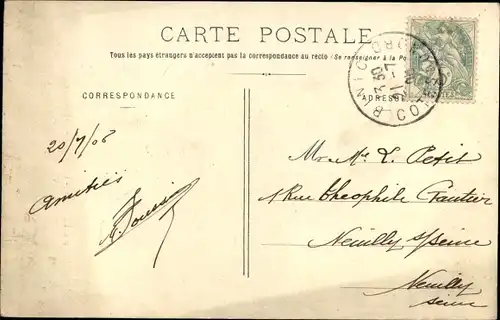 CARTE POSTALE
Tous les pays étrangers n'acceptent pas la correspondance au recto (Se renseigner à la Po
CORRESPONDANCE
ADRESSE
BINIC
20/7/06
Amitiés
Mr M. L. Petit
1 Rue Theophile Gautier
Neuilly s/Seine
Neuilly
Seine